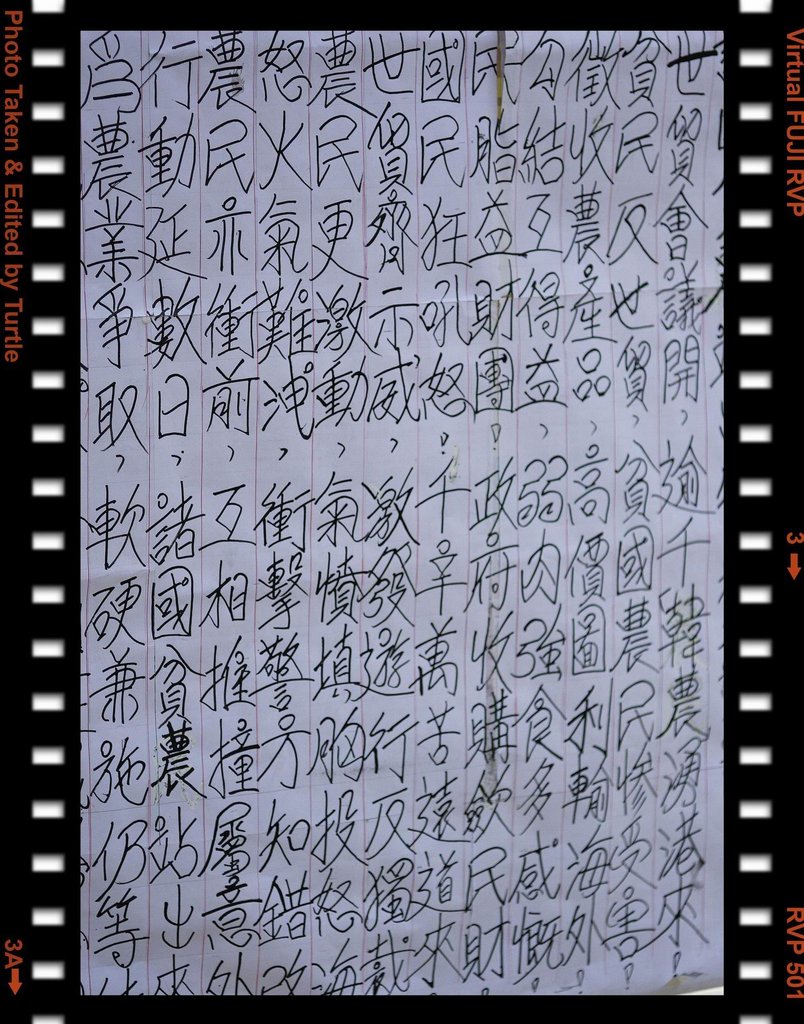 世貿會議開，逾千韓農湧港來
貧民反世貿，貧國農民慘受害！
徵收農產品，高價圖利輸海外！
勾結互得益，弱肉強食多感慨！
民脂益財團！政府收購歛民財！
國民狂吼怒！千辛萬苦遠道來
世貿齊示威，激發遊行反獨裁
農民更激動，氣憤填胸投怒海
怒火氣難洩，衝擊警方知錯改
農民亦衝前，互相推撞屬意外
行動延數日，諸國貧農站出來
為農業爭取，軟硬兼施仍等
Photo Taken & Edited by Turtle
3A
Virtual FUJI RVP
3
RVP 501